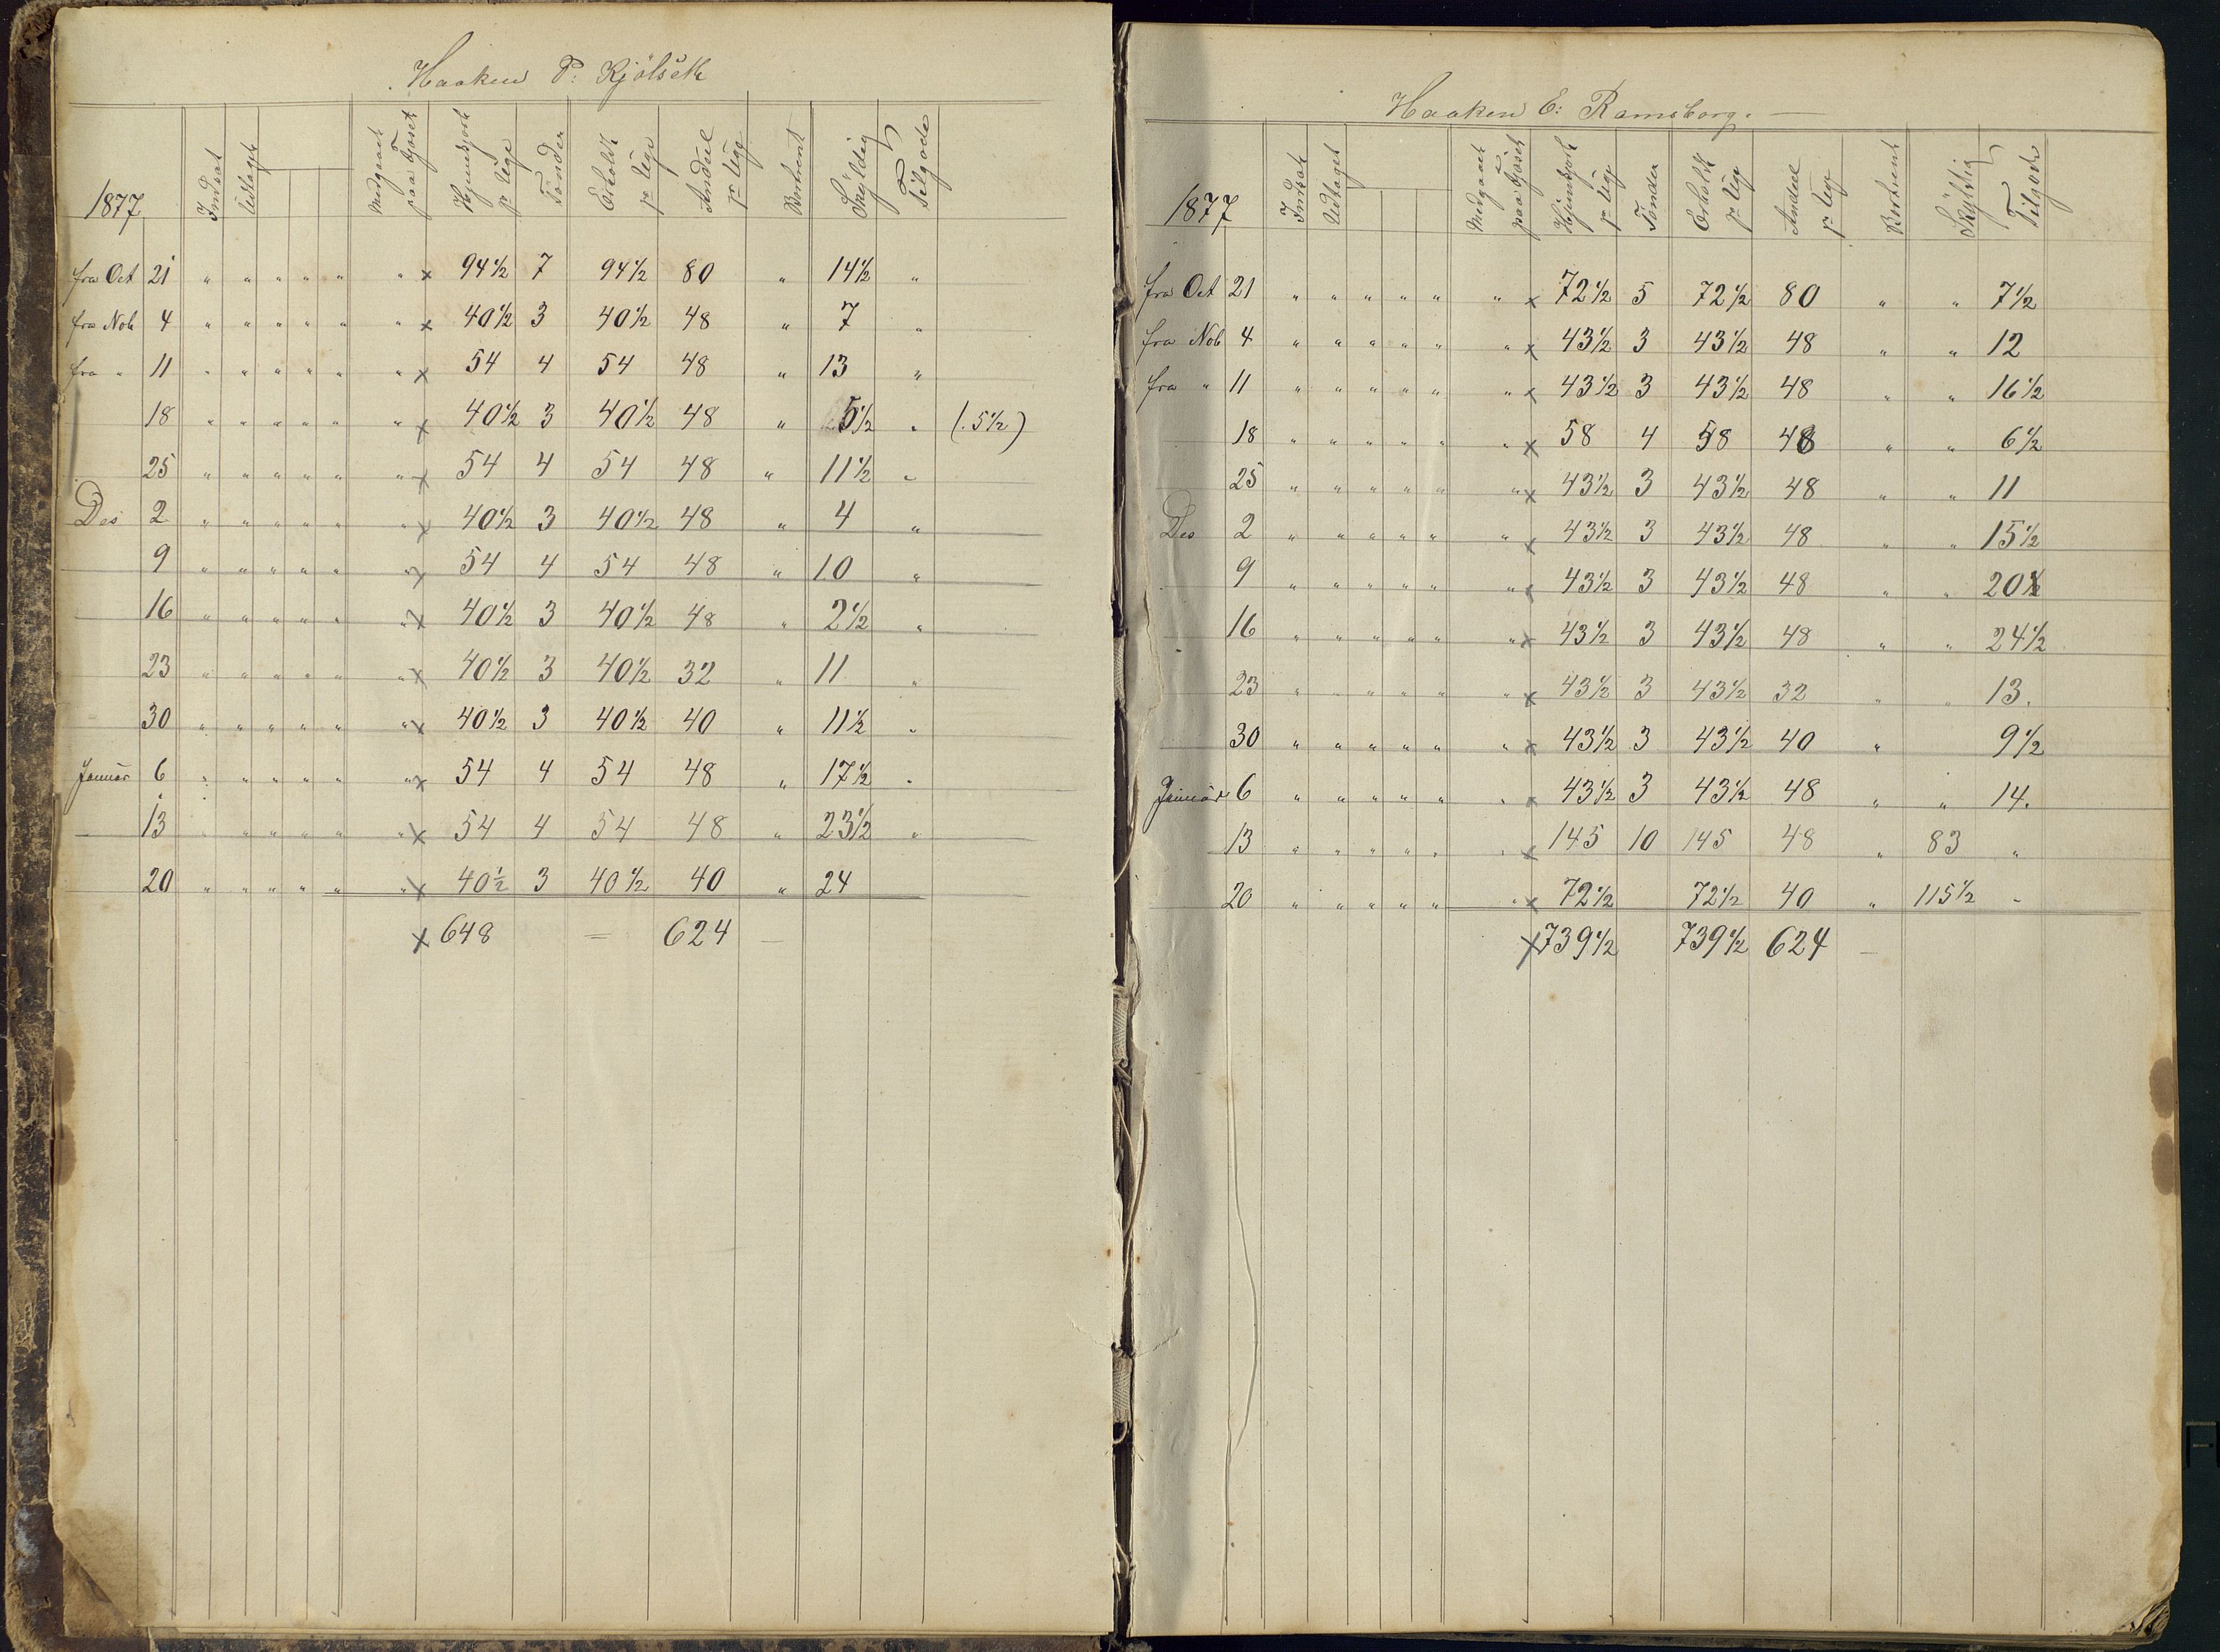 Haaken P: Kjölseth
1877 Indsat Udtaget Medgaaet paa Gjöset Hjemkjört pr Uge Tønder Erholdt pr Uge Andeel pr Uge Bortsent Skyldig Tilgode
fra Oct 21 " " " " " " x 94 1/2 7 94 1/2 80 " 14 1/2 "
fra Nob 4 " " " " " " x 40 1/2 3 40 1/2 48 " 7 "
fra " 11 " " " " " " x 54 4 54 48 " 13 "
18 " " " " " " x 40 1/2 3 40 1/2 48 " 5 1/2 " (.5 1/2)
25 " " " " " " x 54 4 54 48 " 11 1/2 "
Des 2 " " " " " " x 40 1/2 3 40 1/2 48 " 4 "
9 " " " " " " x 54 4 54 48 " 10 "
16 " " " " " " x 40 1/2 3 40 1/2 48 " 2 1/2 "
23 " " " " " " x 40 1/2 3 40 1/2 32 " 11 "
30 " " " " " " x 40 1/2 3 40 1/2 40 " 11 1/2 "
Januar 6 " " " " " " x 54 4 54 48 " 17 1/2 "
13 " " " " " " x 54 4 54 48 " 23 1/2 "
20 " " " " " " x 40 1/2 3 40 1/2 40 " 24
x 648 = 624 —
Haaken E: Ramsborg. —
1877 Indsat Udtaget Medgaaet paa Gjöset Hjemkjört pr Uge Tønder Erholdt pr Uge Andeel pr Uge Bortsent Skyldig Tilgode
fra Oct 21 " " " " " " x 72 1/2 5 72 1/2 80 " " 7 1/2
fra Nob 4 " " " " " " x 43 1/2 3 43 1/2 48 " " 12
fra " 11 " " " " " " x 43 1/2 3 43 1/2 48 " " 16 1/2
18 " " " " " " x 58 4 58 48 " " 6 1/2
25 " " " " " " x 43 1/2 3 43 1/2 48 " " 11
Des 2 " " " " " " x 43 1/2 3 43 1/2 48 " " 15 1/2
9 " " " " " " x 43 1/2 3 43 1/2 48 " " 20
16 " " " " " " x 43 1/2 3 43 1/2 48 " " 24 1/2
23 " " " " " " x 43 1/2 3 43 1/2 32 " " 13.
30 " " " " " " x 43 1/2 3 43 1/2 40 " 9 1/2
Januar 6 " " " " " " x 43 1/2 3 43 1/2 48 " " 14.
13 " " " " " " x 145 10 145 48 " 83 "
20 " " " " " " x 72 1/2 72 1/2 40 " 115 1/2 "
x 739 1/2 739 1/2 624 —